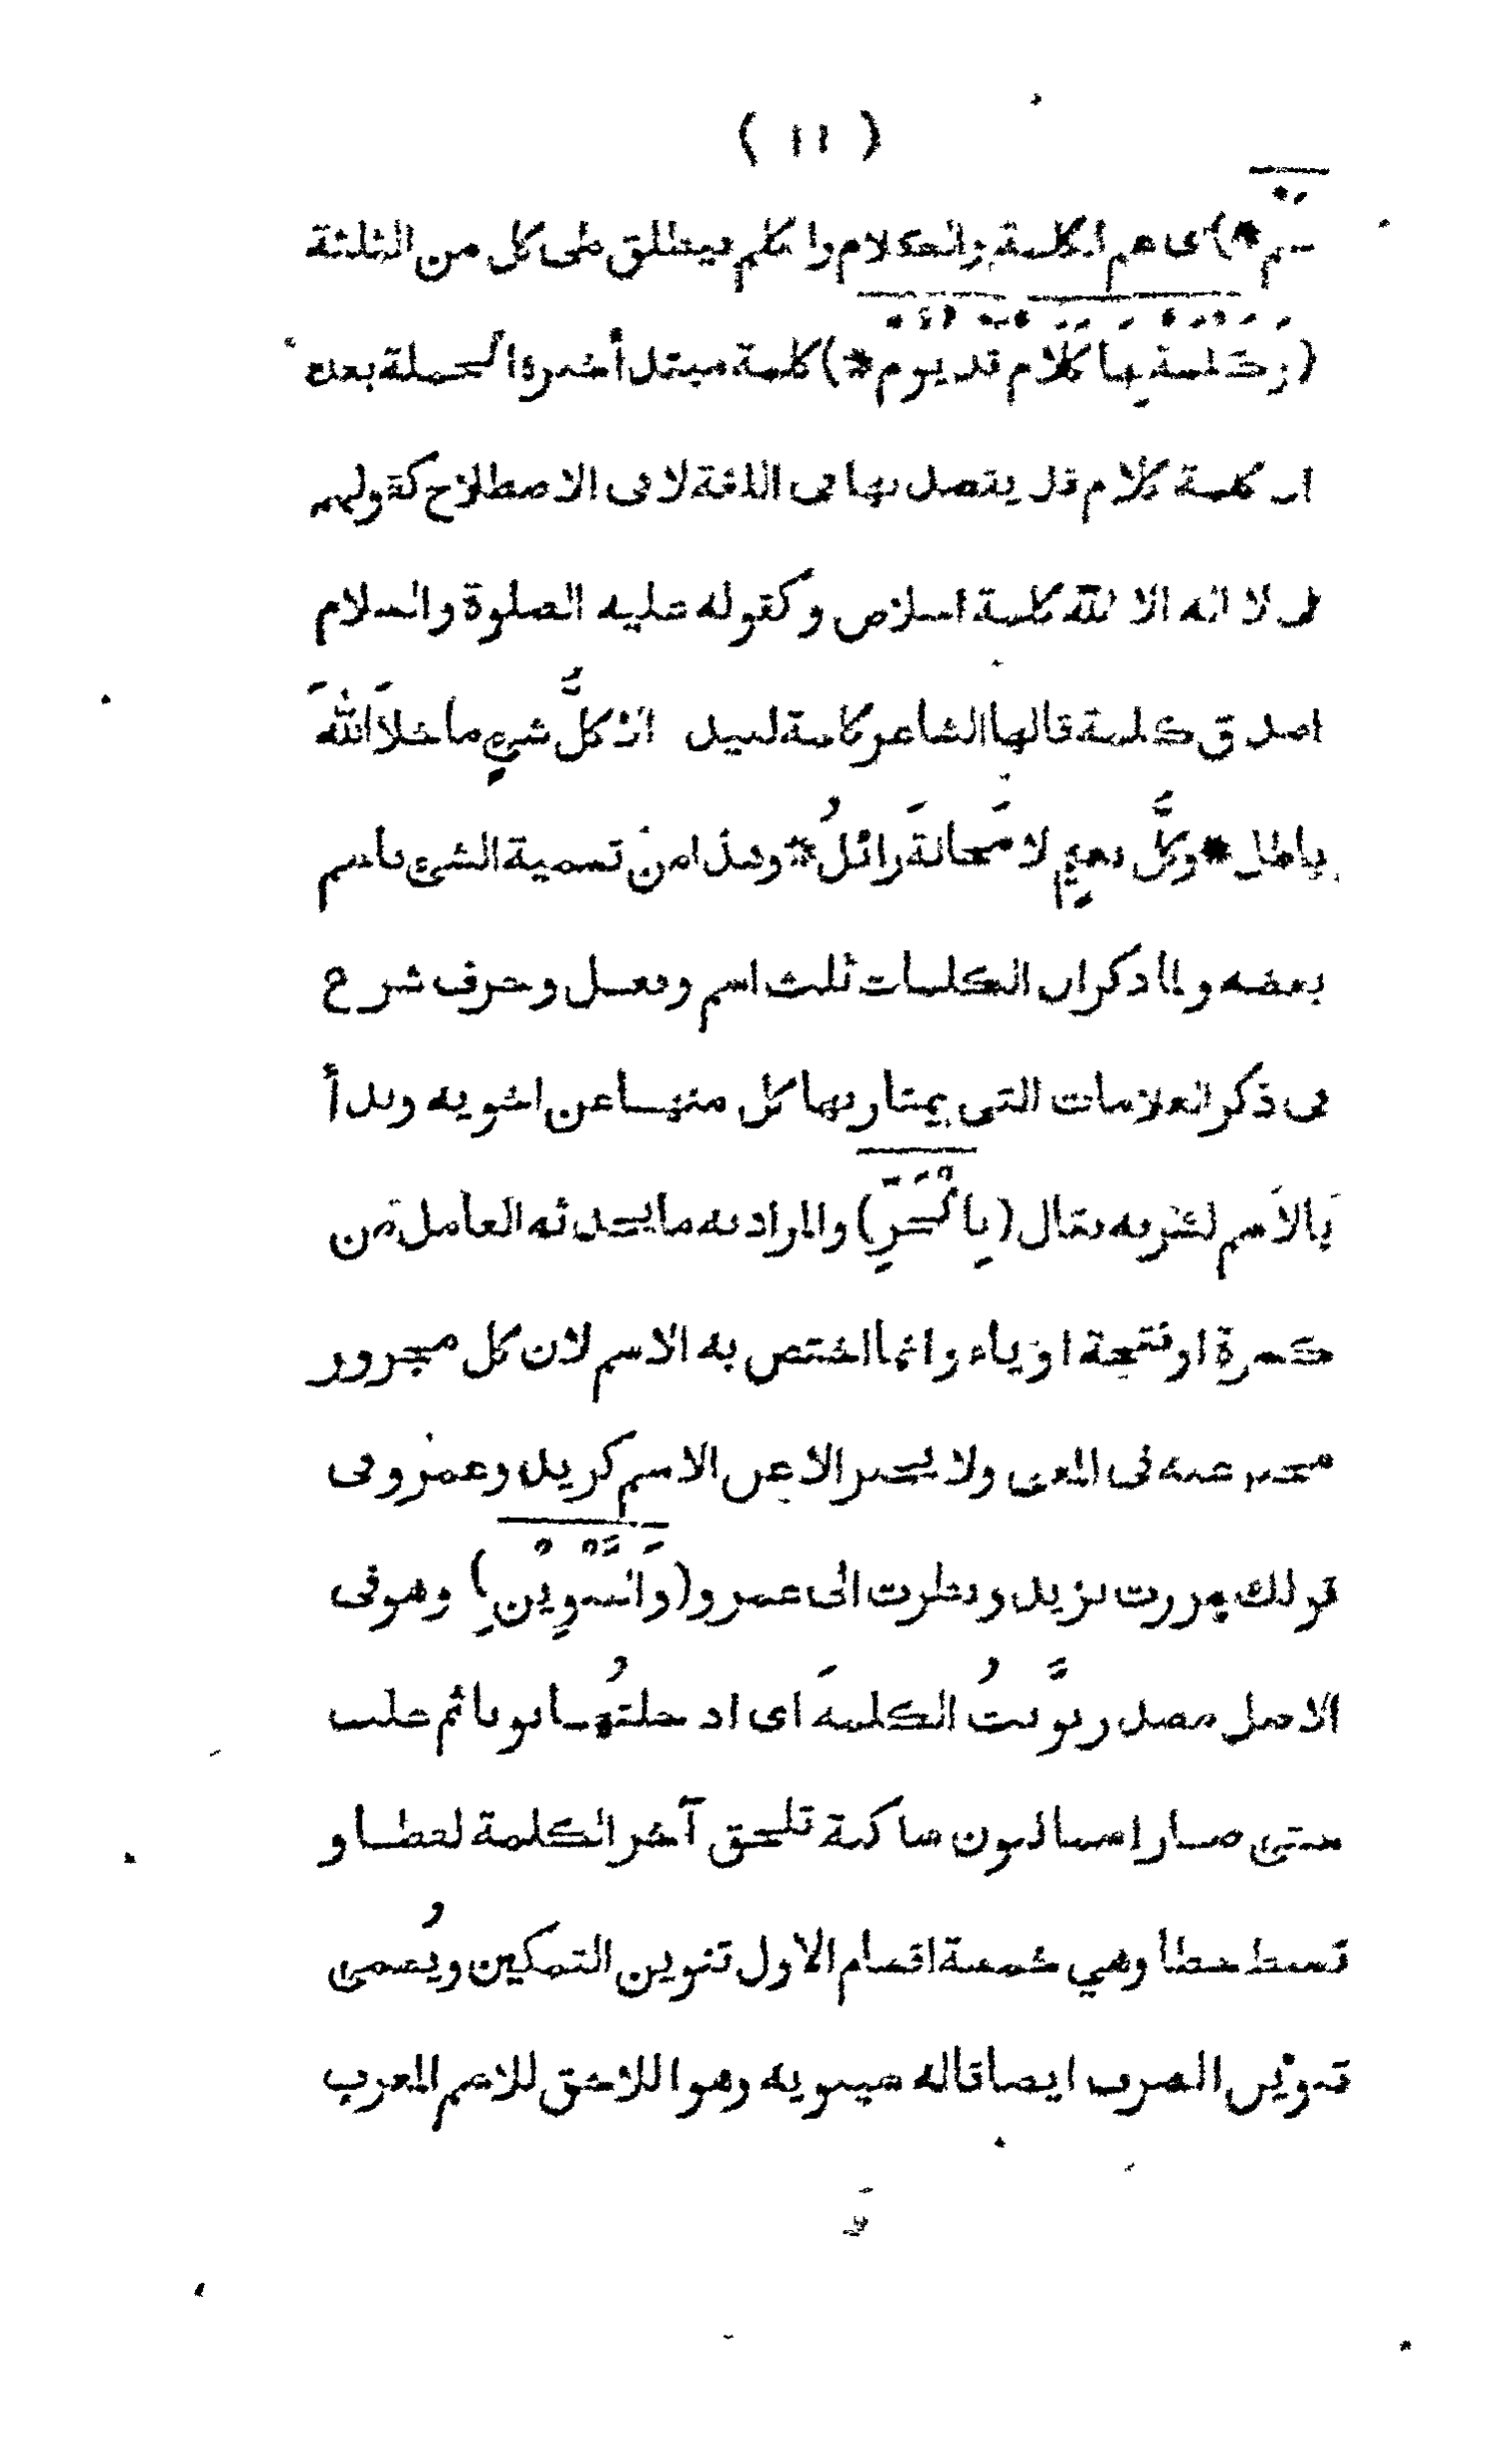 ( ١١ )
عم *) اى عم الكلمة والكلام والكلم فيطلق على كل من الثلثة
(وَكلمة بِهَا كَلَام قد يوم *) كلمة مبتدأ خبره الجملة بعده
اى كلمة كلام قد يقصد بها فى اللغة لا فى الاصطلاح كقولهم
فى لا اله الا الله كلمة اخلاص وكقوله عليه الصلوة والسلام
اصدق كلمة قالها الشاعر كلمة لبيد الا كلُّ شيءٍ ما خلا اللهَ
باطل * وكلُّ نعيمٍ لا مَحالةَ زائلُ * وهذا من تسمية الشئ باسم
بعضه ولما ذكر ان الكلمات ثلث اسم وفعل وحرف شرع
فى ذكر العلامات التى يمتاز بها كل منها عن اخويه وبدأ
بالاسم لشرفه فقال (بِالْجَرِّ) والمراد به ما يحدثه العامل من
كسرة او فتحة او ياء وانما اختص به الاسم لان كل مجرور
مخبر عنه فى المعنى ولا يخبر الا عن الاسم كزيد وعمرو فى
قولك مررت بزيد ونظرت الى عمرو (وَالتَّنْوِيْنِ) وهو فى
الاصل مصدر نوَّنتُ الكلمةَ اى ادخلتُها نونا ثم غلب
حتى صار اسما لنون ساكنة تلحق آخر الكلمة لفظا و
تسقط خطا وهي خمسة اقسام الاول تنوين التمكين ويُسمى
تنوين الصرف ايضا قاله سيبويه وهو اللاحق للاسم المعرب